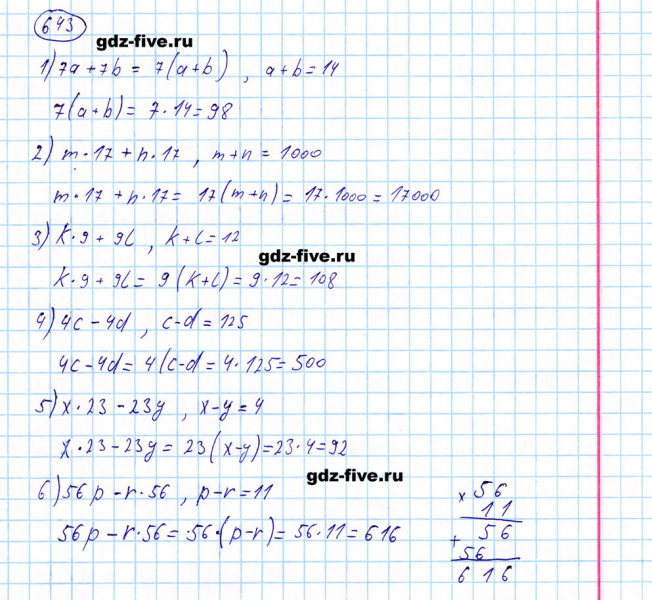 643
gdz-five.ru
1) 7a + 7b = 7(a+b) , a+b=14
7(a+b) = 7·14=98
2) m·17 + n·17 , m+n = 1000
m·17 + n·17 = 17(m+n) = 17·1000 = 17000
3) k·9 + 9l , k+l=12
gdz-five.ru
k·9 + 9l = 9(k+l) = 9·12= 108
4) 4c - 4d , c-d = 125
4c - 4d = 4(c-d = 4·125 = 500
5) x·23 - 23y , x-y = 4
x·23 - 23y = 23(x-y)=23·4=92
gdz-five.ru
6) 56p - r·56 , p-r = 11
56p - r·56 = 56·(p-r) = 56·11 = 616
x 56
11
+ 56
56
616